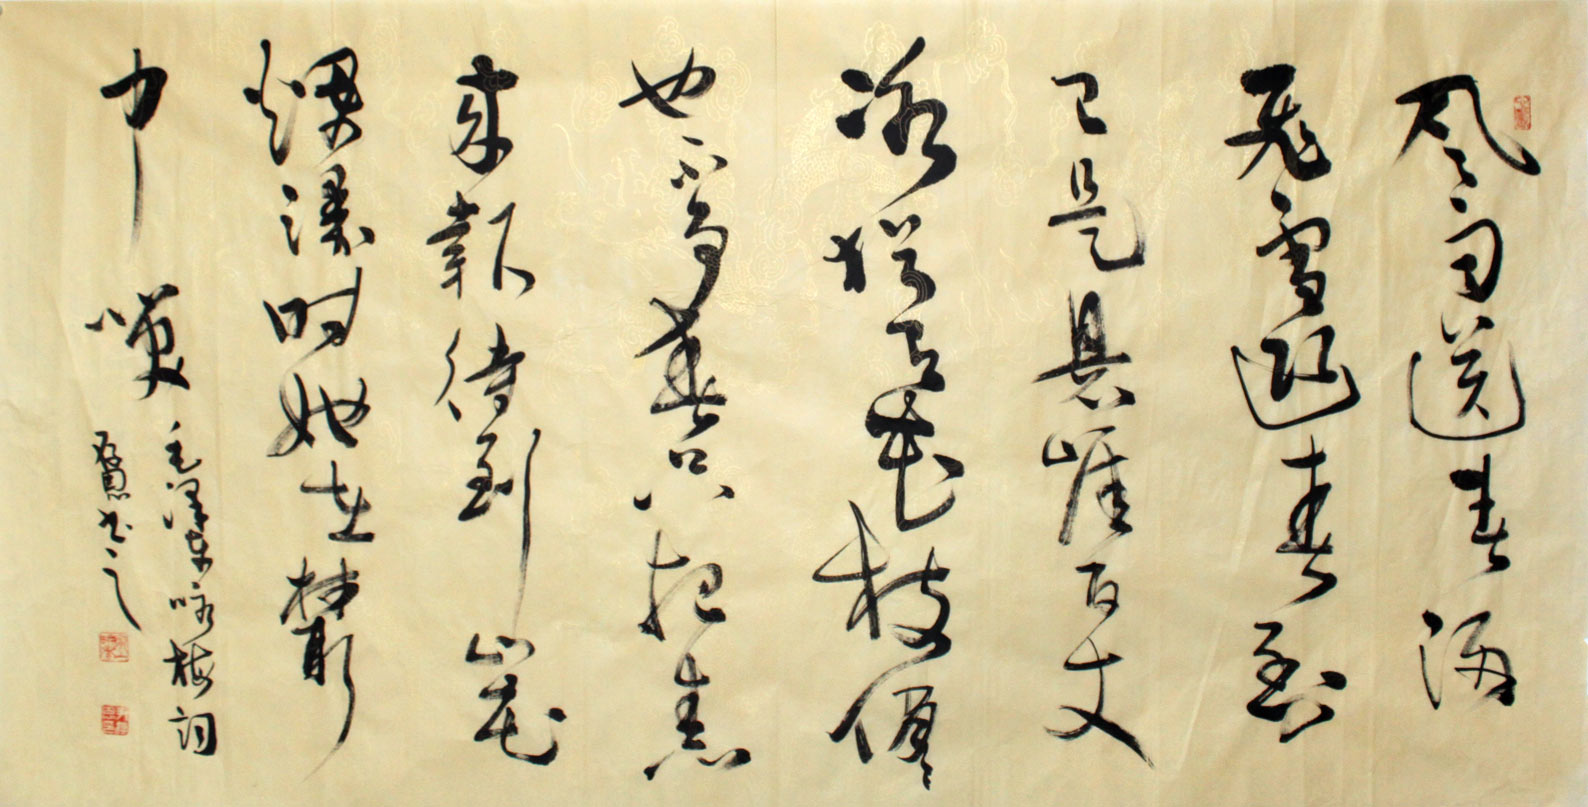 风雨送春归
飞雪迎春到
已是悬崖百丈
冰犹有花枝俏〻
也不争春只把春
来報待到山花
爛漫时她在叢
中笑
毛泽东咏梅词
书之